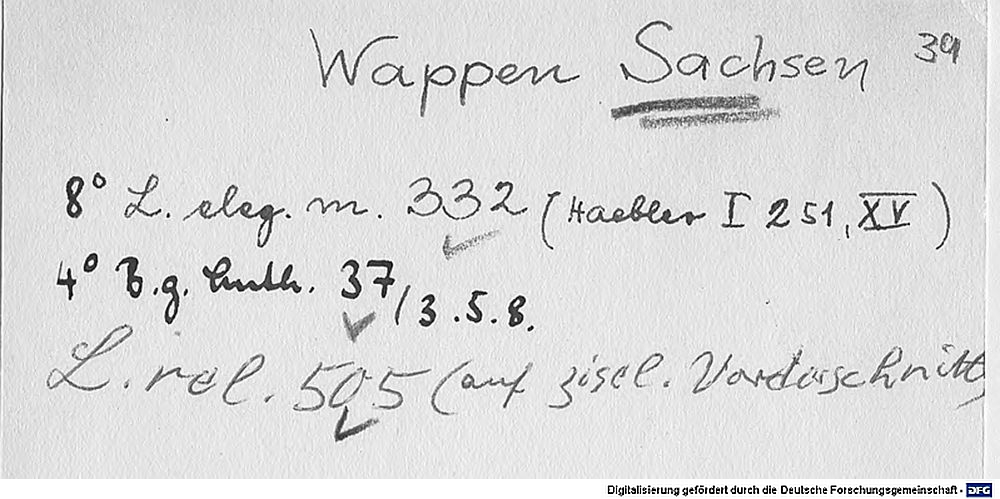 Wappen Sachsen 39
8° L. eleg. m. 332 (Haebler I 251, XV)
4° B.g. luth. 37/3.5.8.
L. rel. 505 (auf zisel. Vorderschnitt)
Digitalisierung gefördert durch die Deutsche Forschungsgemeinschaft - DFG